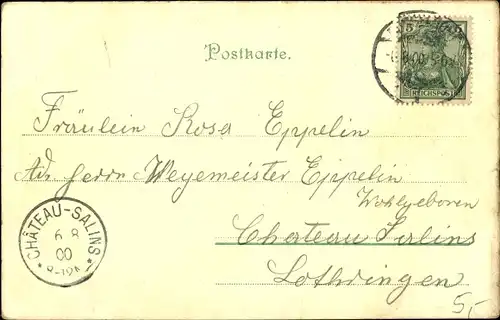 Postkarte.
5
8 00
REICHSPOST
Fräulein Rosa Eppelin
Adr. Herrn Wegemeister Eppelin
Wohlgeboren
Chateau Salins
Lothringen
CHÂTEAU-SALINS
6 8
00
5,-